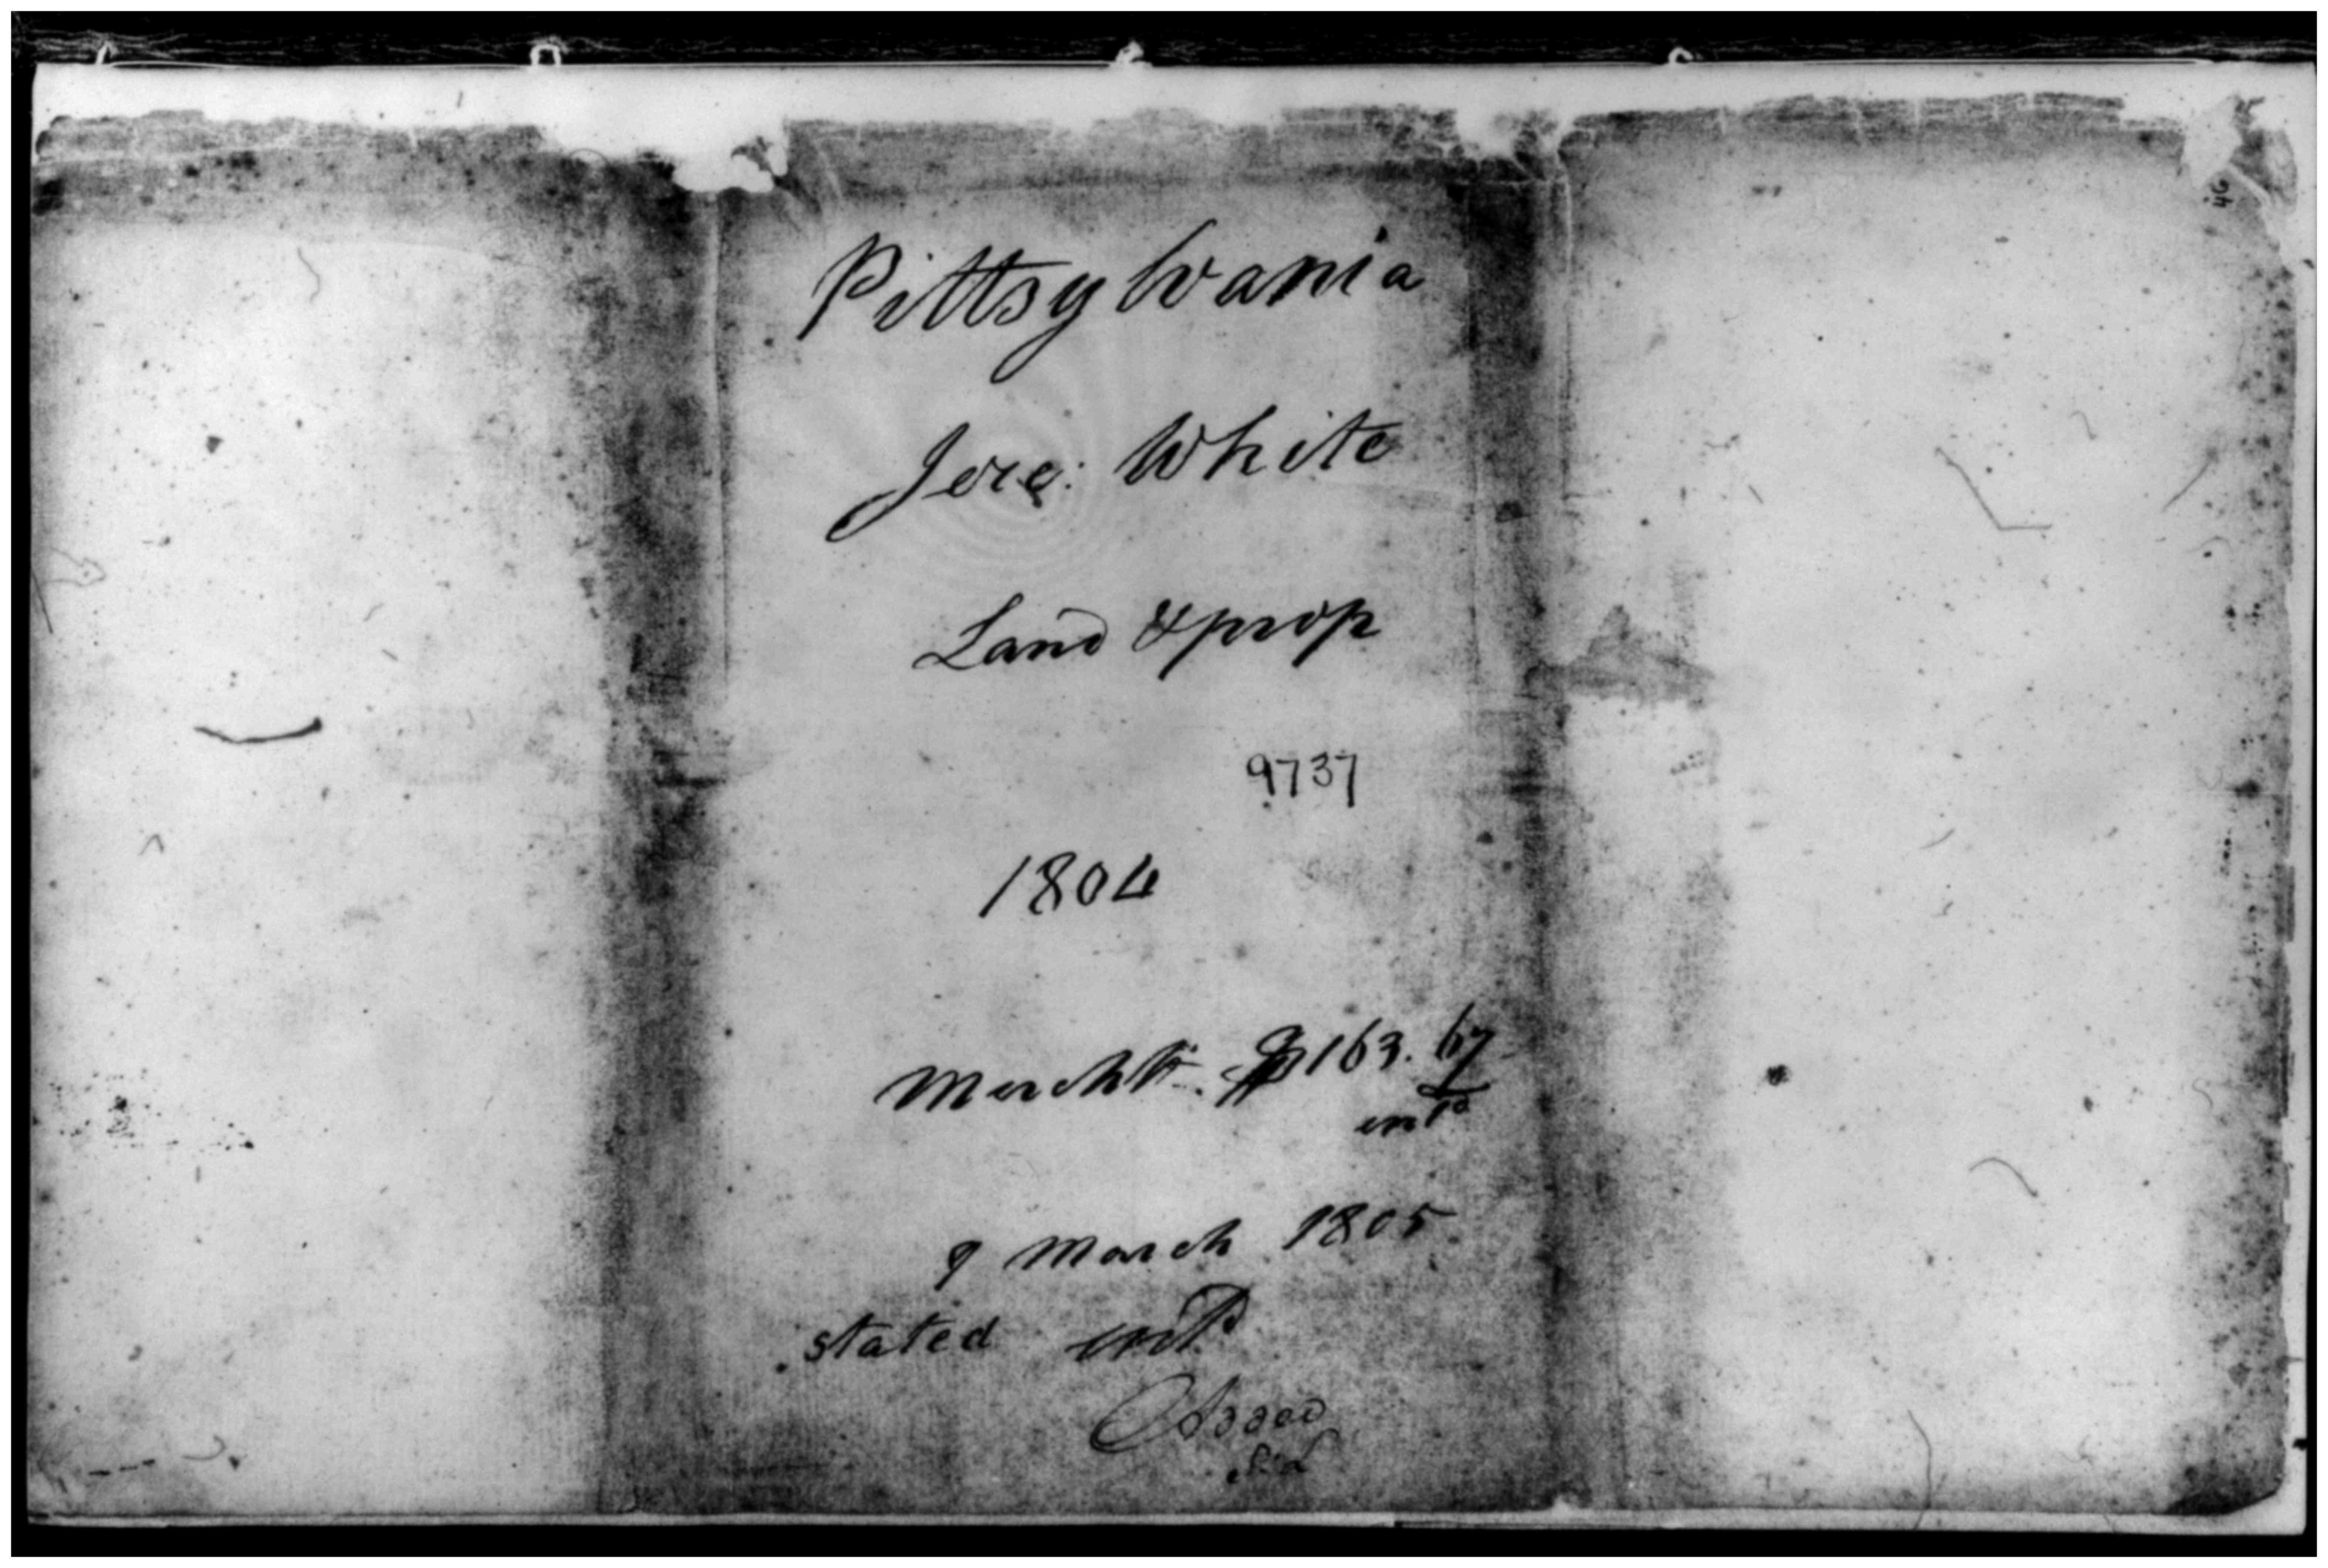 Pittsylvania
Jere: White
Land & prop
9737
1804
Merchts. $163.67
entd
9 March 1805
stated entd
46